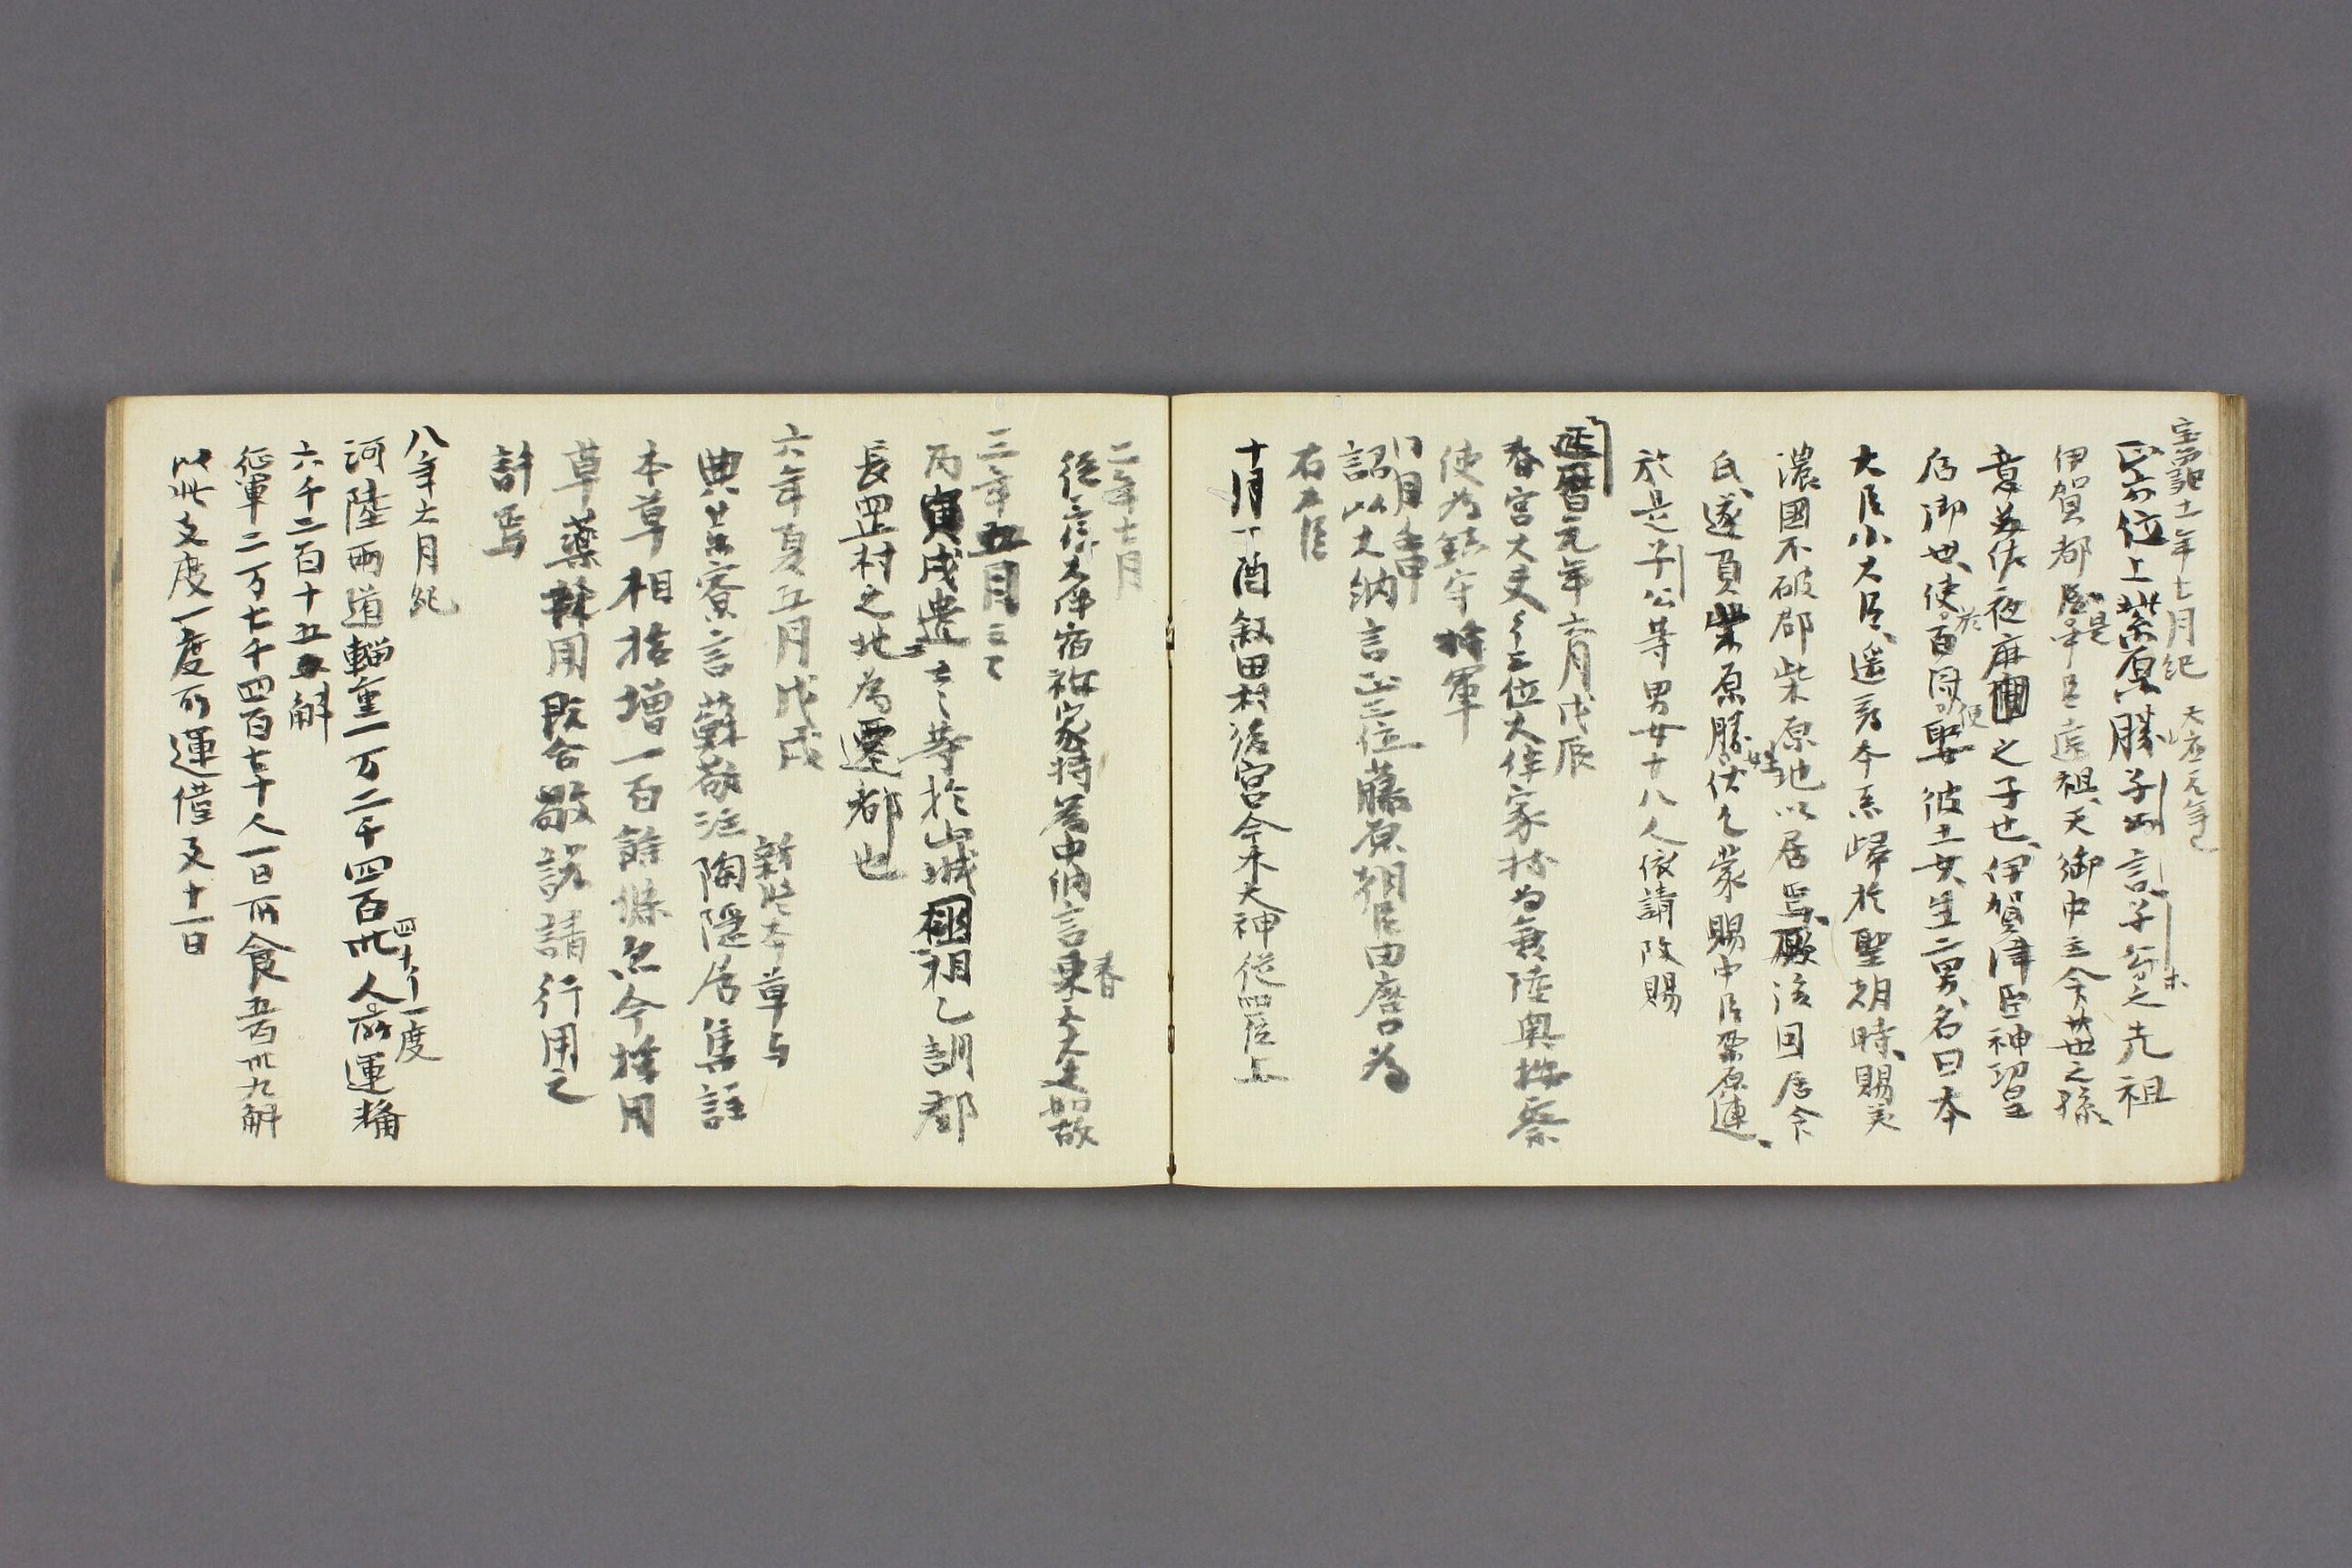 宝亀十二年七月紀 天應元年也
正六位上柴原勝子公言子公等之先祖
伊賀都臣是中臣遠祖天御中主命廿世之孫
意美佐夜麻之子也伊賀津臣神功皇
后御世使於百済便娶彼土女生二男名曰本
大臣小大臣遥尋本系歸於聖朝時賜美
濃國不破郡柴原地以居焉厥後因居命
氏遂負柴原勝姓伏乞蒙賜中臣栗原連
於是子公等男女十八人依請改賜
延暦元年六月戊辰
春宮大夫從三位大伴家持為兼陸奥按察
使為鎮守将軍
詔以大納言正三位藤原朝臣田麿為
右大臣
十月丁酉叙田村後宮今木大神従四位上
二年七月
大伴宿祢家持為中納言春宮大夫如故
三年五月
丙寅戌遣等於山城國乙訓郡
長岡村之地為遷都也
六年夏五月戊戌
典薬寮言蘇敬注新修本草与陶隠居集註
本草相検増一百餘條亦今採用
草薬既合敬説請行用之
許焉
八年六月紀
河陸両道輜重一万二千四百卌人一度所運糒
六千二百十五斛
征軍二万七千四百七十人一日所食五百卌九斛
以此支度一度所運僅支十一日